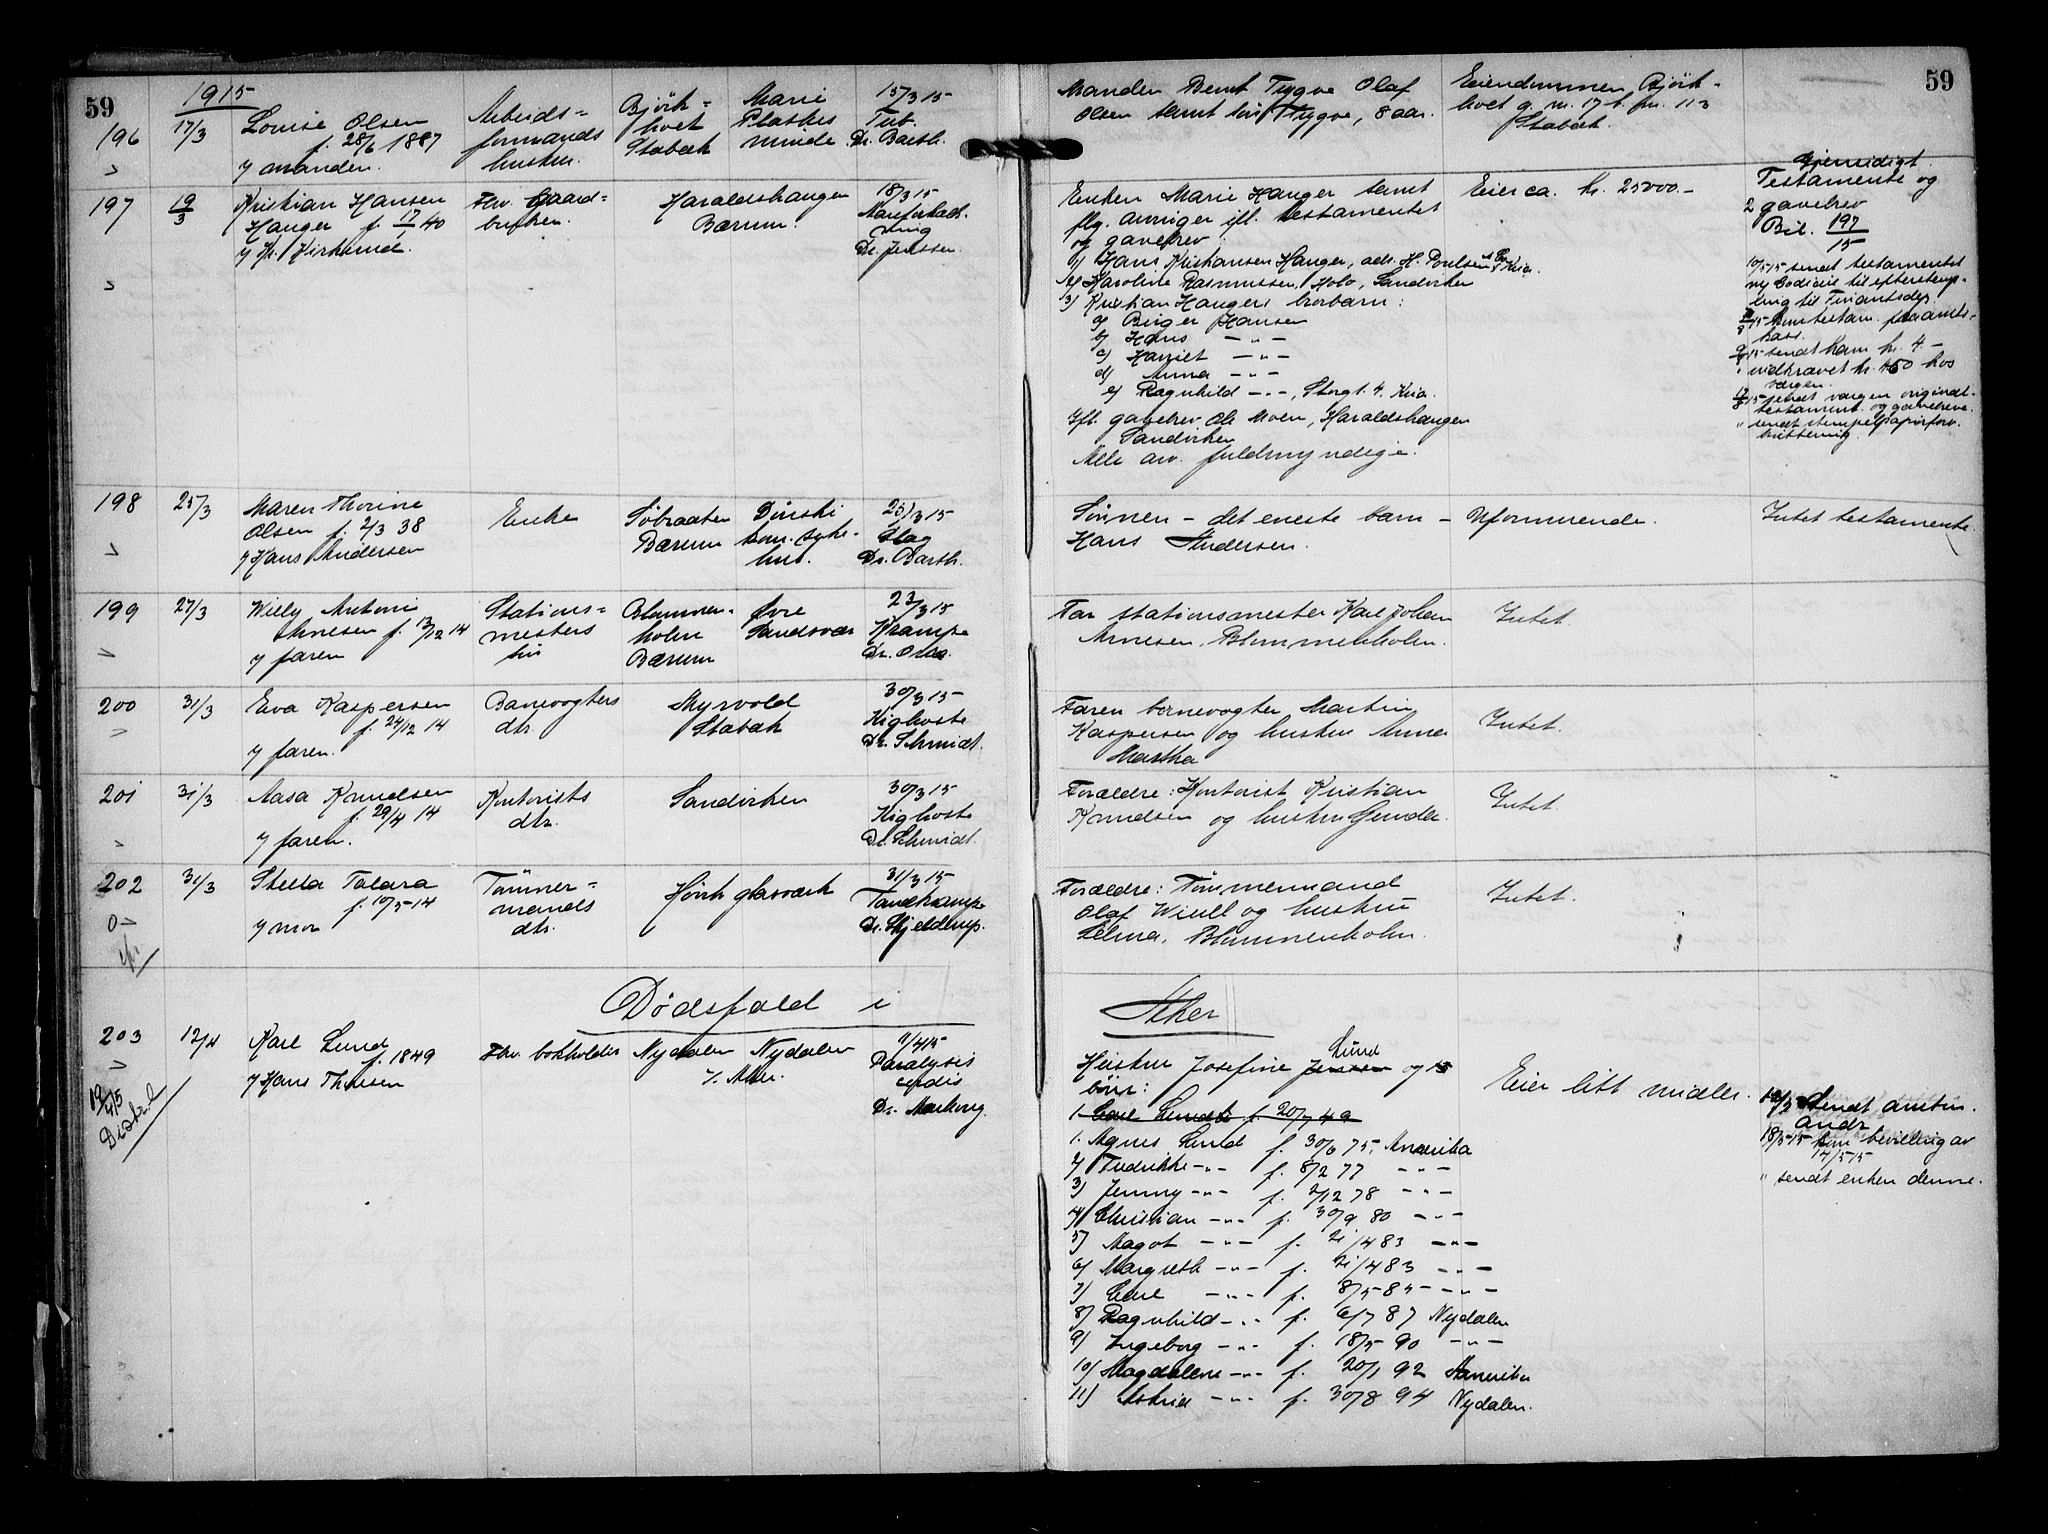 59
1915
196
17/3
Louise Olsen
f. 28/6 1887
v manden.
Arbeids-
formands
hustru.
Bjørk-
hoet
Stabæk
Marie
Plaskes
minde.
15/3 15
Tub.
Dr. Barth.
Manden Bernt Trygve Olaf
Olsen samt søn Trygve, 8 aar.
Eiendommen Bjørk-
hoet g. nr. 17 br. nr. 113
Stabæk.
59
197
19/3
Kristian Hansen
Hauger f. 17/1 40
v Kr. Kirkerud.
Fhv. Gaard-
bruker.
Haraldshaugen
Bærum.
18/3 15
Dr. Jenssen.
Enken Marie Hauger samt
flg. arvinger ifl. testamentet
og gavebrev:
1) Hans Kristiansen Hauger, adr. H. Poulsen & Co Kria.
2) Karoline Rasmussen, Holo, Sandviken
3) Kristian Haugers brorbarn:
a) Birger Hansen
b) Hans — " —
c) Harriet — " —
d) Anna — " —
e) Ragnhild — " —, Storgt. 4. Kria.
Ifl. gavebrev Ole Moen, Haraldshaugen
Sandviken
Alle arv. fuldmyndige.
Eier ca. kr. 25000.-
Gjensidigt
Testamente og
2 gavebrev
Bil. 197/15
10/5 15 sendt testamentet
og Codicil til efterstemp-
ling til Finantsdep.
sendt ham kr. 4.-
" indkrævet kr. 4.50 hos
vergen.
sendt vergen original-
testament. og gavebreve.
198
25/3
Maren Thorine
Olsen f. 2/3 38
v Hans Andersen
Enke
Søbraaten
Bærum
Dønski
kom. syke-
hus.
25/3 15
Slag
Dr. Barth.
Sønnen - det eneste barn -
Hans Andersen.
Uformuende.
Intet testamente.
199
27/3
Willy Antoni
Arnesen f. 13/12 14
v faren
Stations-
mesters
søn
Blommen-
holm
Bærum
Øvre
Sandsvær
23/3 15
Krampe
Far stationsmester Karl Johan
Arnesen, Blommenholm.
Intet.
200
31/3
Eva Kaspersen
f. 24/12 14
v faren.
Banevogters
dtr.
Myrvold
Stabæk
30/3 15
Kighoste
Dr. Schmidt.
Faren banevogter Martin
Kaspersen og hustru Anna
Martha
Intet.
201
31/3
Aasa Knudsen
f. 29/4 14
v faren.
Kontorists
dtr.
Sandviken
30/3 15
Kighoste
Dr. Schmidt.
Forældre: Kontorist Kristian
Knudsen og hustru Gunda.
Intet.
202
31/3
Stella Talara
f. 10/5 14
v mor
Tømmer-
mands
dtr.
Høvik glasværk
31/3 15
Tandkrampe
Dr. Skjelderup.
Forældre: Tømmermand
Olaf Wiull og hustru
Selma, Blommenholm.
Intet.
Dødsfald i
Aker
203
12/4
19/4 15
Karl Lund
f. 1849
v Hans Thoresen
Fhv. bokholder
Nydalen
V. Aker.
Nydalen
11/4 15
Paralysis
cordis
Hustru Josefine Jensen Lund og 15
børn:
1. Carl Lundt f. 20/7 49
1. Agnes Lund f. 30/6 75, Amerika
2) Fredrikke — " — f. 8/2 77 — " —
3) Jenny — " — f. 2/12 78 — " —
4) Christian — " — f. 30/9 80 — " —
5) Magot — " — f. 21/4 83 — " —
6) Margreth — " — f. 21/4 83 — " —
7) Carl — " — f. 8/5 85 — " —
8) Ragnhild — " — f. 6/7 87 Nydalen
9) Ingeborg — " — f. 18/5 90 — " —
10) Magdalene — " — f. 20/1 92 Amerika
11) Astrid — " — f. 30/8 94 Nydalen.
Eier litt midler.
sendt amtm.
andr.
18/5 15 kom bevilling av
14/5 15
" sendt enken denne.